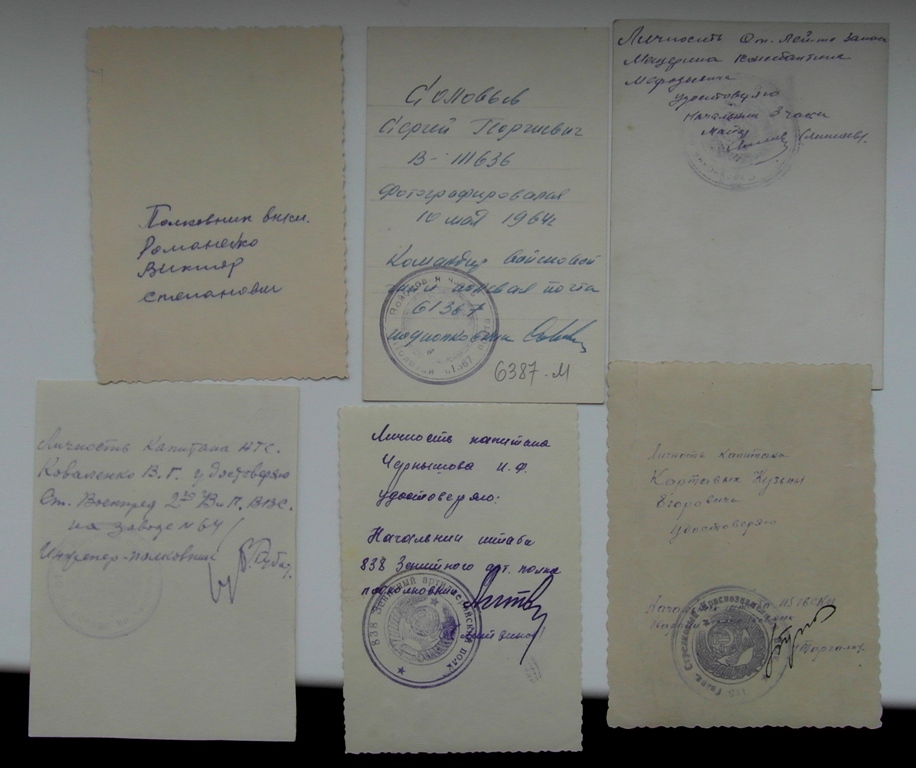 Полковник вкм.
Романенко
Виктор
Степанович
Соловьев
Сергей Георгиевич
В- III 636
Фотографировался
10 мая 1964г
Командир войсковой
части полевая почта
61367
подполковник
6387-М
Личность Ст. Лейт. Запаса
Мещерина Константина
Мефодиевича
удостоверяю
Начальник 3 части
Майор
Личность Капитана НТС.
Коваленко В. Г. удостоверяю
Ст. Военпред 2го ВП. ВВС.
на заводе N 64
Инженер-полковник
Личность капитана
Чернышова И. Ф.
удостоверяю:
Начальник штаба
838 Зенитного арт. полка
подполковник
838 Зенитный артиллерийский полк
Личность капитана
Картавых Кузьмы
Егоровича
Удостоверяю